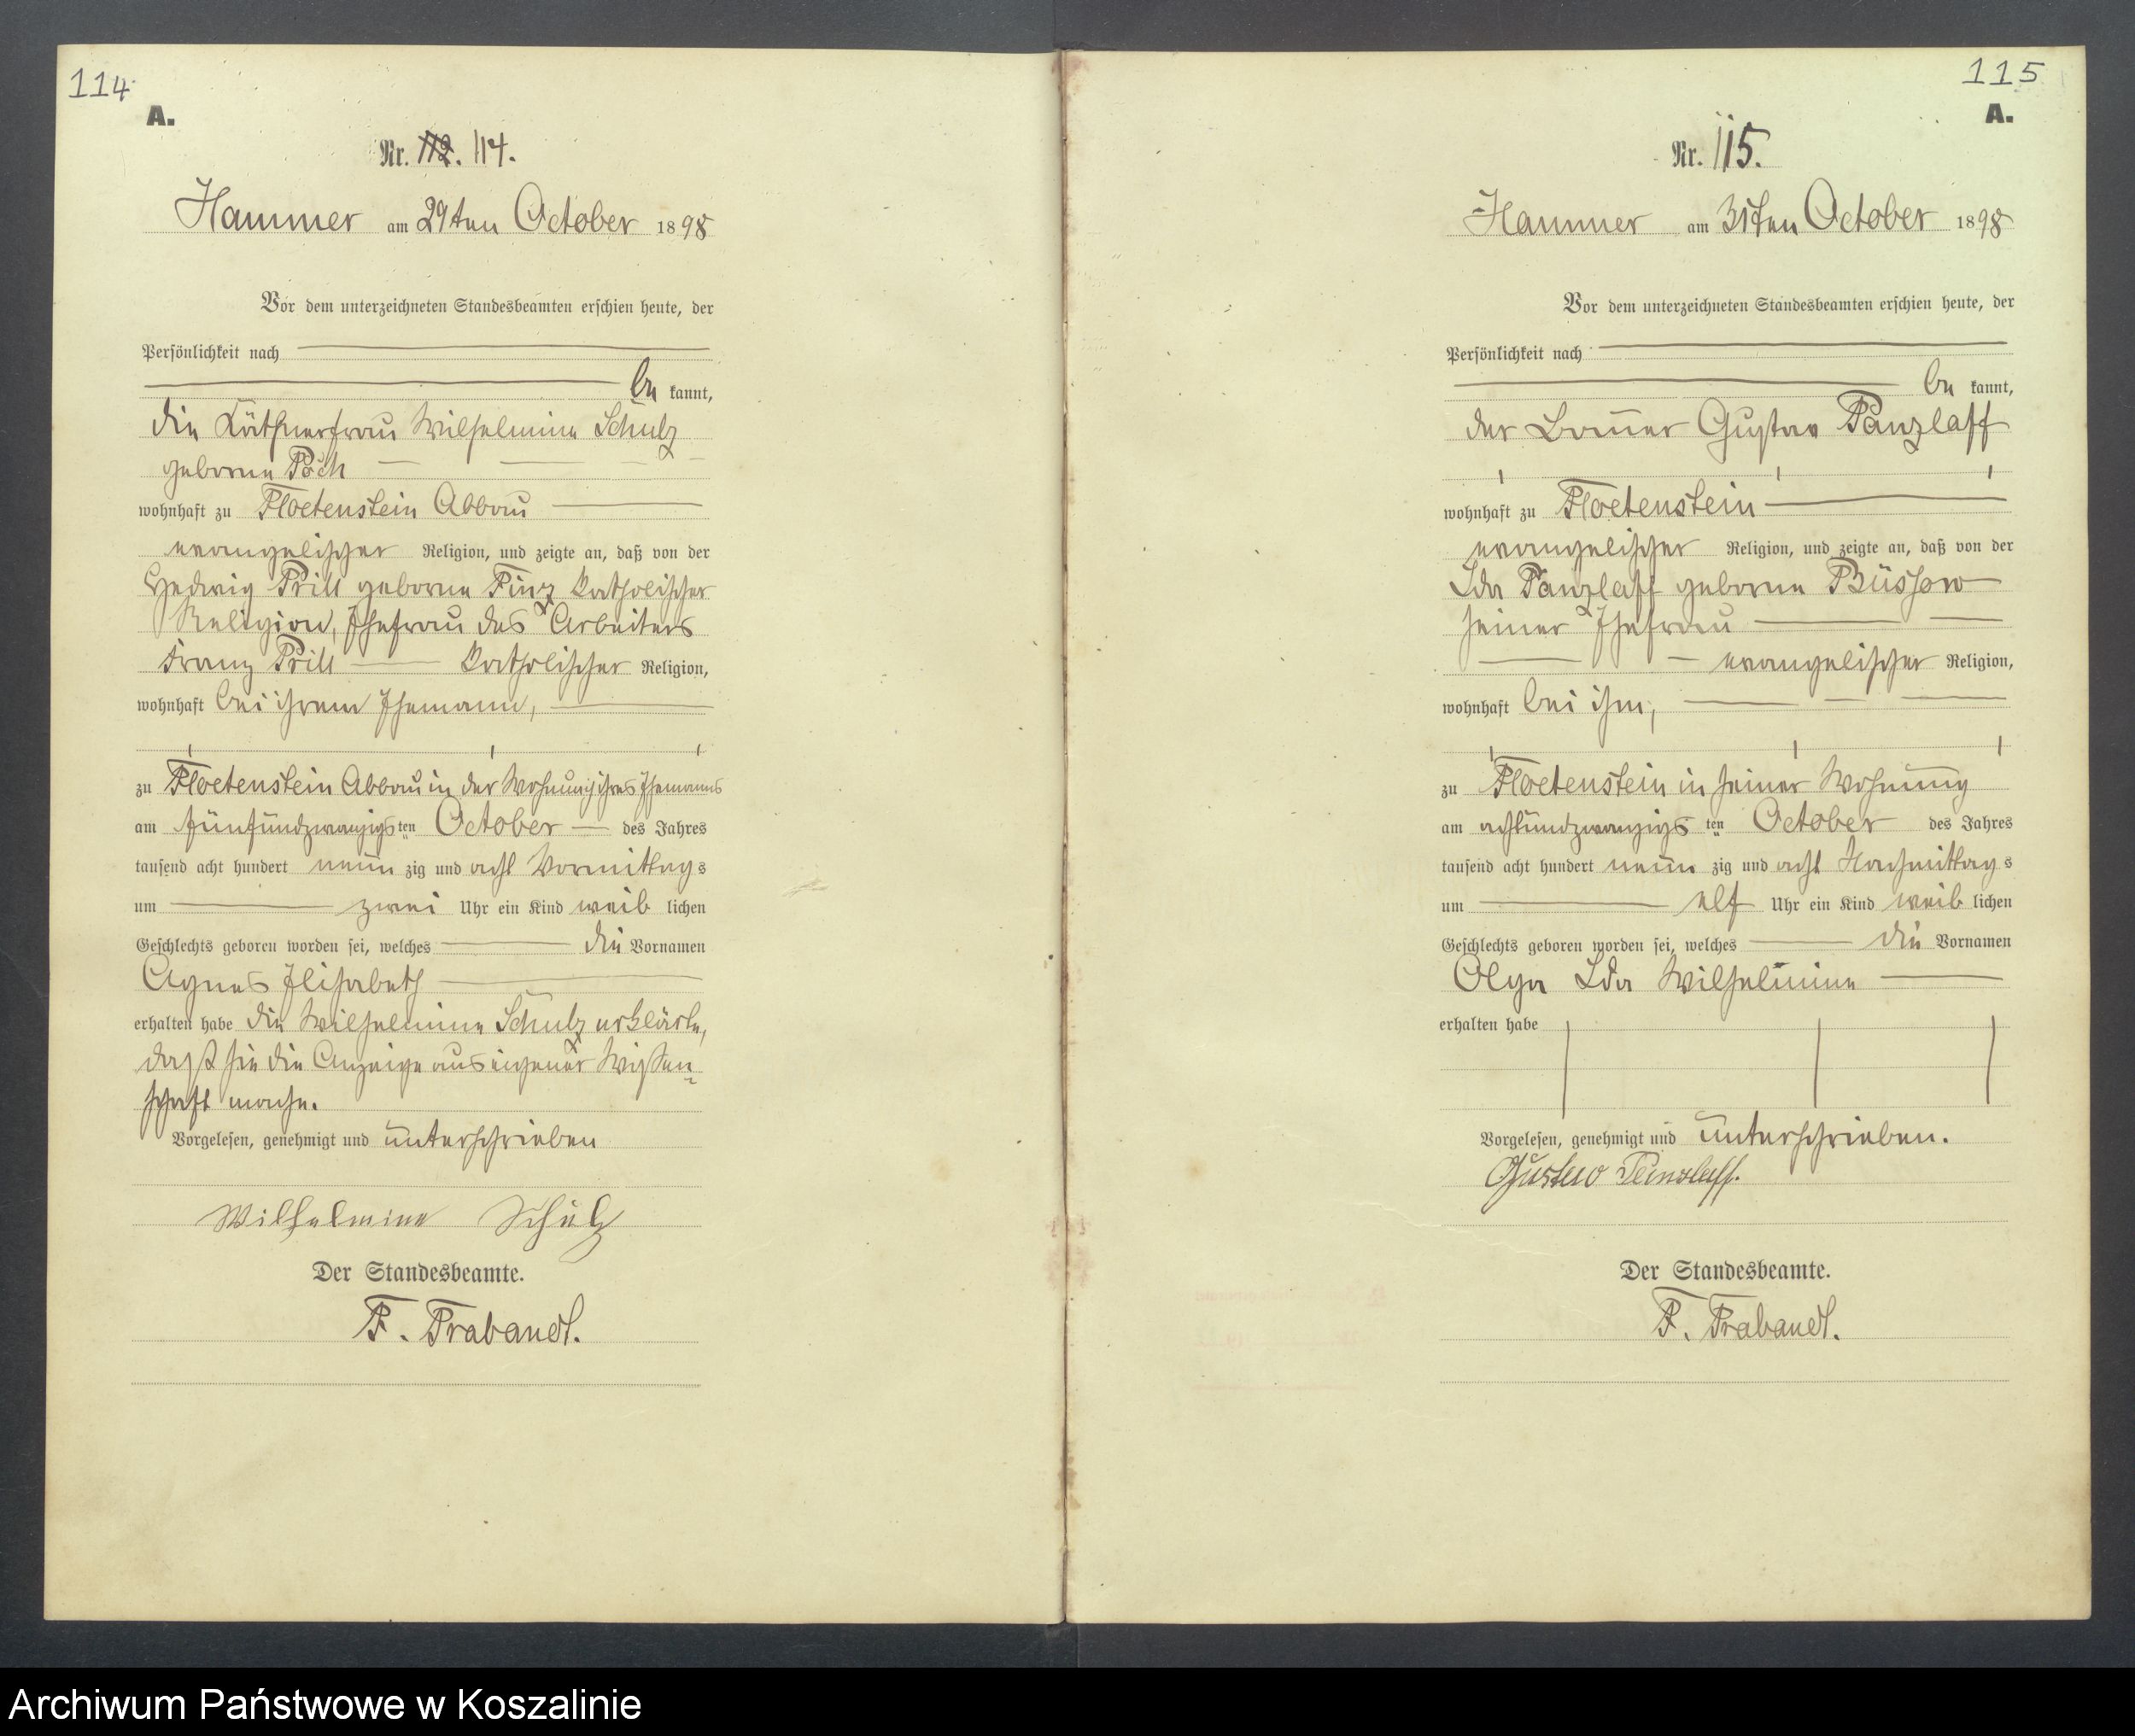 114
A.
Nr. 112. 114.
Hammer am 29ten October 1898
Vor dem unterzeichneten Standesbeamten erschien heute, der
Persönlichkeit nach
be kannt,
die Käthnerfrau Wilhelmine Schulz
geborne Poch
wohnhaft zu Floetenstein Abbau
evangelischer Religion, und zeigte an, daß von der
Hedwig Prill geborne Finz katholischer
Religion, Ehefrau des Arbeiters
Franz Prill katholischer Religion,
wohnhaft bei ihrem Ehemann,
zu Floetenstein Abbau in der Wohnung ihres Ehemanns
am fünfundzwanzigs ten October des Jahres
tausend acht hundert neun zig und acht Vormittag s
um zwei Uhr ein Kind weib lichen
Geschlechts geboren worden sei, welches die Vornamen
Agnes Elisabeth
erhalten habe die Wilhelmine Schulz erklärte,
daß sie die Anzeige aus eigener Wissen-
schaft mache.
Vorgelesen, genehmigt und unterschrieben
Wilhelmine Schulz
Der Standesbeamte.
F. Trabandt.
115
A.
Nr. 115.
Hammer am 31ten October 1898
Vor dem unterzeichneten Standesbeamten erschien heute, der
Persönlichkeit nach
be kannt,
der Bauer Gustav Panzlaff
wohnhaft zu Floetenstein
evangelischer Religion, und zeigte an, daß von der
Ida Panzlaff geborne Büssow
seiner Ehefrau
evangelischer Religion,
wohnhaft bei ihm,
zu Floetenstein in seiner Wohnung
am achtundzwanzigs ten October des Jahres
tausend acht hundert neun zig und acht Nachmittag s
um elf Uhr ein Kind weib lichen
Geschlechts geboren worden sei, welches die Vornamen
Olga Ida Wilhelmine
erhalten habe
Vorgelesen, genehmigt und unterschrieben.
Gustav Panzlaff.
Der Standesbeamte.
F. Trabandt.
Archiwum Państwowe w Koszalinie